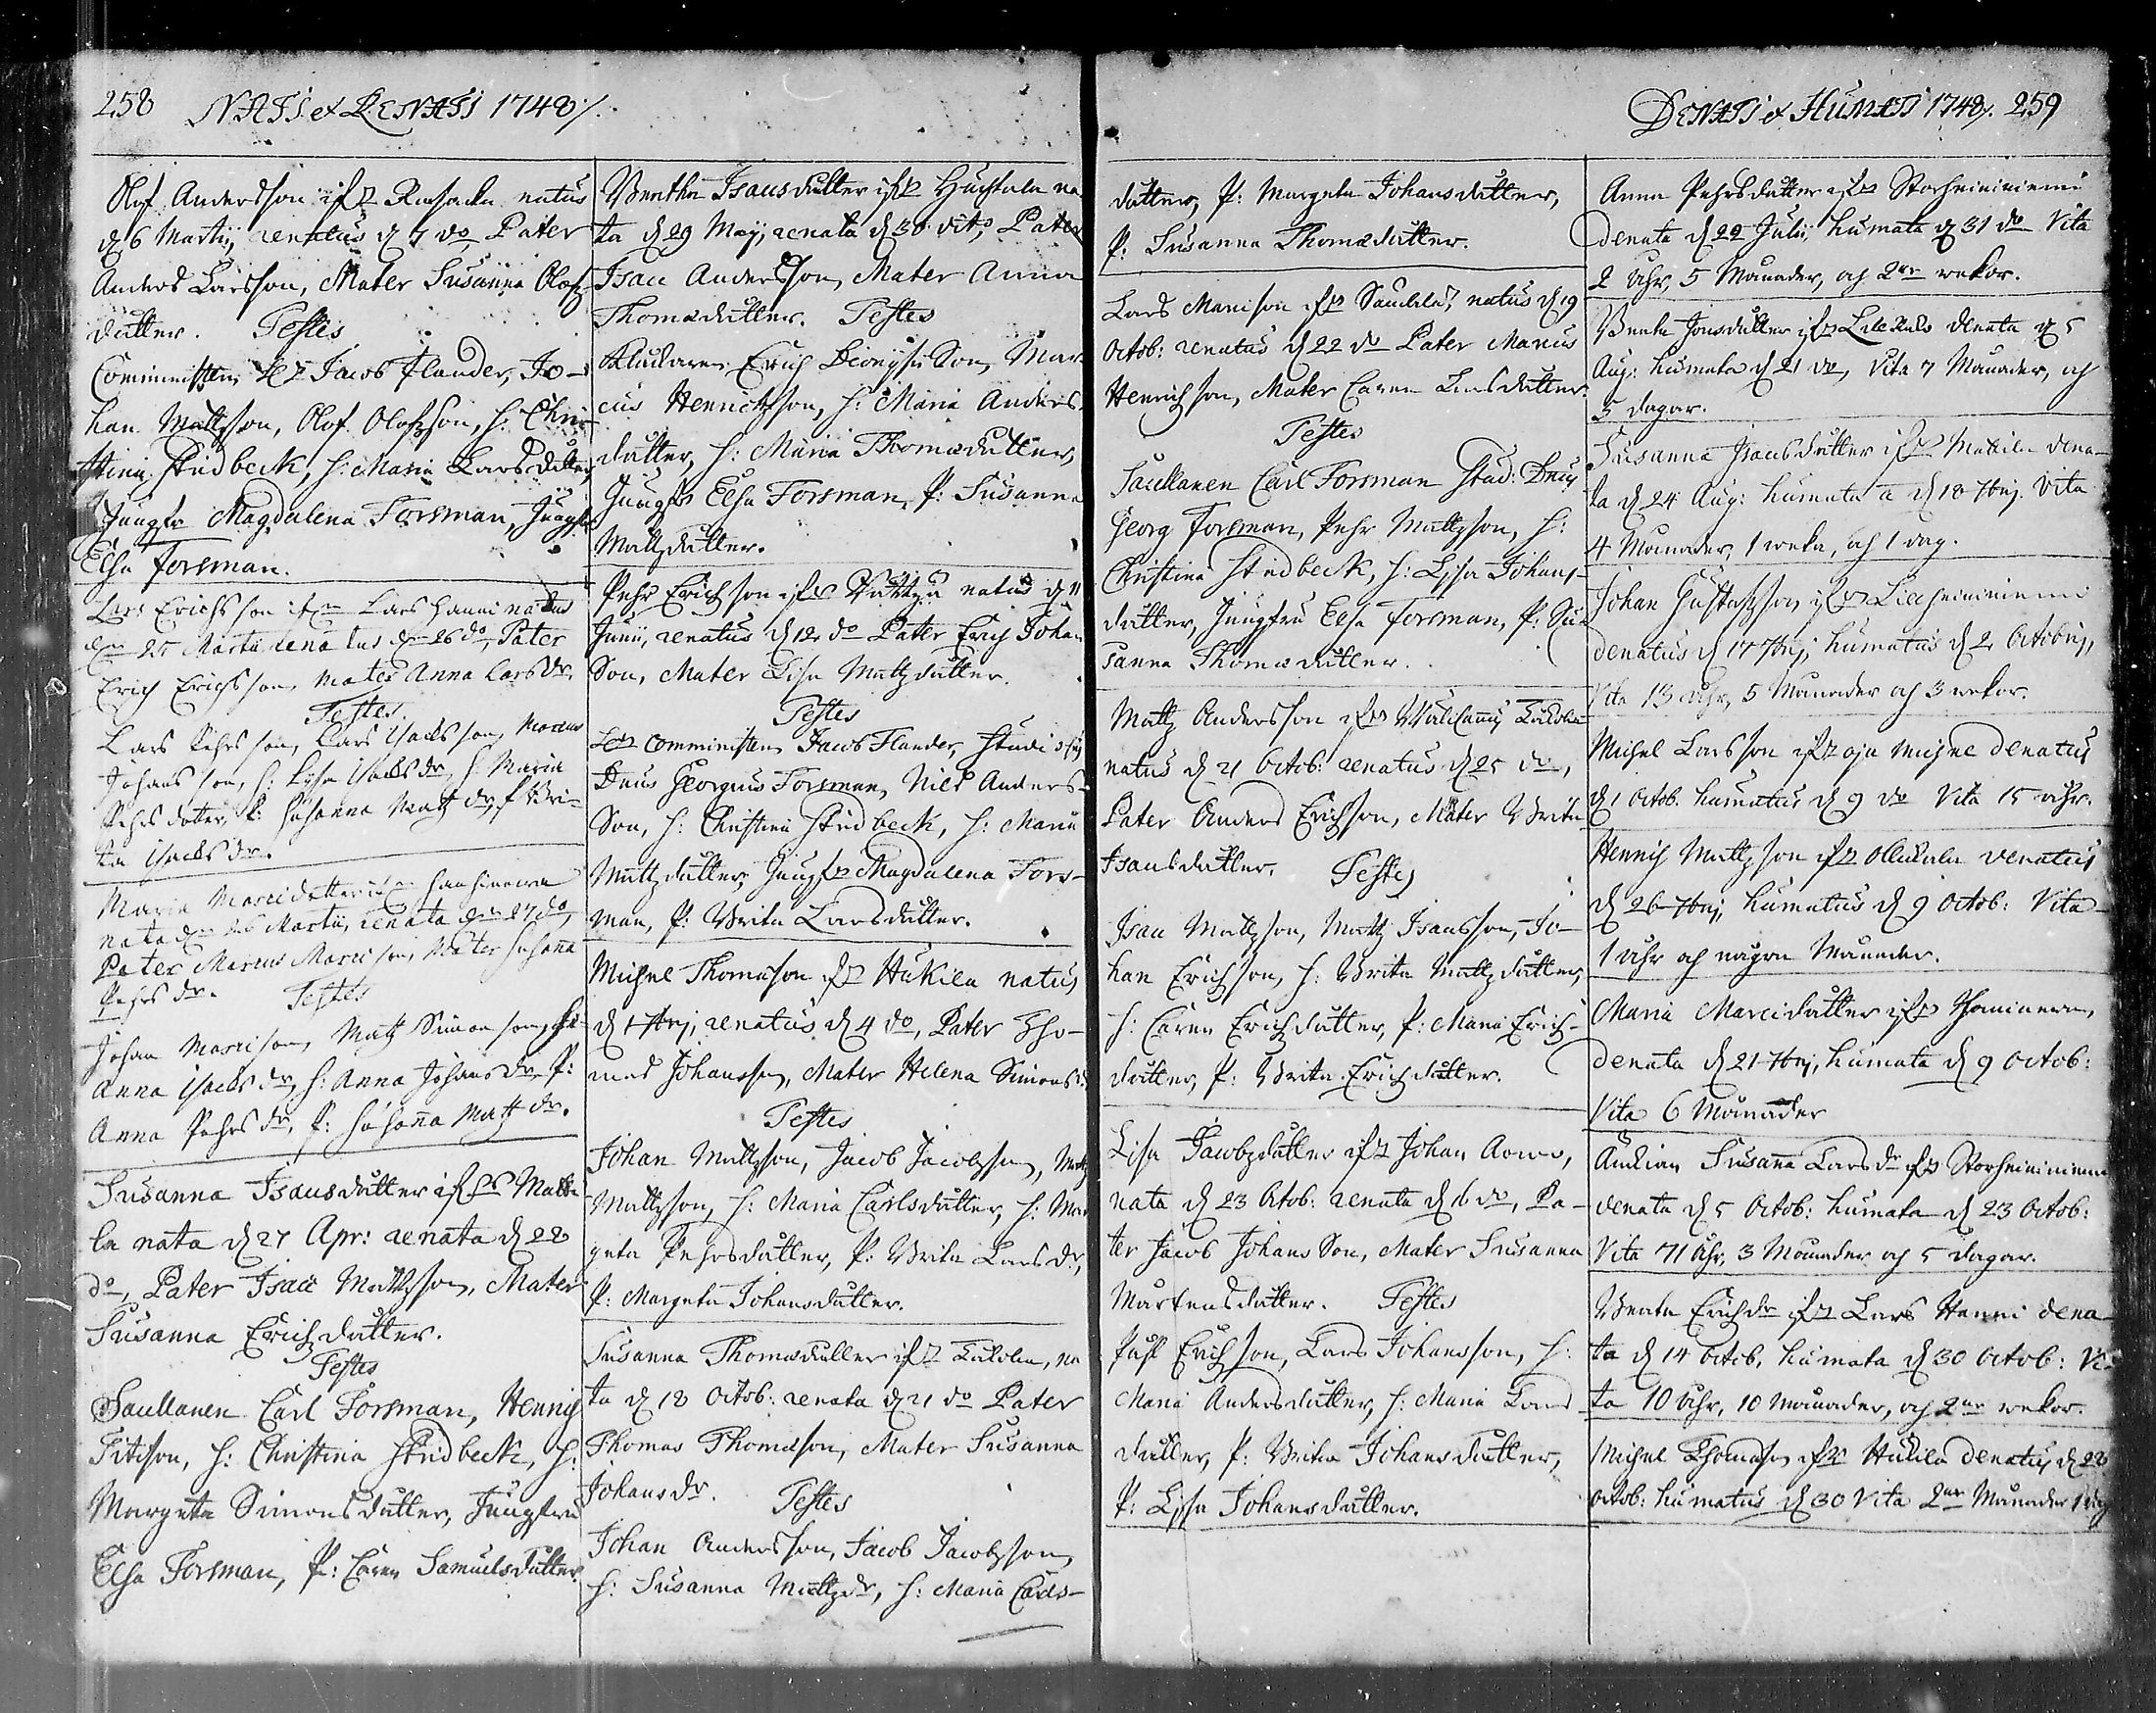 258 NATI et RENATI 1748/.
Olof Andersson ifrn Rasala natus
d 6 Martij, renatus d 7 do Pater
Anders Larsson, Mater Susanna Olofz-
dotter. Testes
Comministern Hr Jacob Flander, Jo-
han Mattzson, Olof Olofzson, H: Chri-
stina Stridbeck, H: Maria Larsdotter,
Jungfr Magdalena Forsman, Jungfr
Elsa Forsman.
Lars Erichsson ifrn Lars Hanni natus
den 25 Martii renatus den 26 do, Pater
Erich Erichsson, Mater Anna Larsdr,
Testes
Lars Pehrsson, Lars Isacksson, Marcus
Johansson, H: Lisa Isacksdr, H: Maria
Pehrsdotter, P: Susanna Mattzdr, P: Bri-
ta Isacksdr.
Maria Marcidotter ifrn
nata den 26 Martii, renata den 27 do,
Pater Marcus Marcison, Mater Susanna
Pehrsdr. Testes
Johan Marcison, Mattz Simonson, H:
Anna Isacksdr, H: Anna Johansdr, P:
Anna Pehrsdr, P: Susanna Mattzdr.
Susanna Isacsdotter ifrn Matti-
la nata d 27 Apr: renata d 28
do, Pater Isac Mattzson, Mater
Susanna Erichzdotter.
Testes
Carl Forsman, Henrich
H: Christina Stridbeck, H:
Margeta Simonsdotter, Jungfru
Elsa Forsman, P: Caren Samuelsdotter.
Beatha Isacsdotter ifrn Huhtala na-
ta d 29 Maij, renata d 30 dito, Pater
Isac Andersson, Mater Anna
Thomædotter. Testes
Erich Dionysii Son, Mar-
cus Henrichson, H: Maria Anders-
dotter, H: Maria Thomædotter,
Jungfr Elsa Forsman, P: Susanna
Mattzdotter.
Pehr Erichson ifrn natus d 11
Junii, renatus d 12 do Pater Erich Johan
Son, Mater Lisa Mattzdotter.
Testes
Hr Comministern Jacob Flander, Studiosus
Dnus Georgius Forsman, Nils Anders-
Son, H: Christina Stridbeck, H: Maria
Mattzdotter, Jungfr Magdalena Fors-
man, P: Brita Larsdotter.
Michel Thomæson ifrn Hukila natus
d 1 7brij, renatus d 4 do, Pater Tho-
mas Johansson, Mater Helena Simonsdr
Testes
Johan Mattzson, Jacob Jacobzson, Mattz
Mattzson, H: Maria Carlsdotter, H: Mar-
geta Pehrsdotter, P: Brita Larsdr,
P: Margeta Johansdotter.
Susanna Thomædotter ifrn na-
ta d 18 Octob: renata d 21 do Pater
Thomas Thomæson, Mater Susanna
Johansdr. Testes
Johan Andersson, Jacob Jacobzson,
H: Susanna Mattzdr, H: Maria Carls-
DENATI et HUMATI 1748/. 259
dotter, P: Margeta Johansdotter,
P: Susanna Thomædotter.
Lars Marcison ifrn natus d 19
Octob: renatus d 22 do Pater Marcus
Henrichson, Mater Caren Larsdotter.
Testes
Carl Forsman Stud: Dnus
Georg Forsman, Pehr Mattzson, H:
Christina Stridbeck, H: Lisa Johans-
dotter, Jungfru Elsa Forsman, P: Su-
sanna Thomædotter.
Mattz Andersson ifrn
natus d 21 Octob: renatus d 25 do,
Pater Anders Erichson, Mater Brita
Isacsdotter. Testes
Isac Mattzson, Mattz Isacsson, Jo-
han Erichson, H: Brita Mattzdotter,
H: Caren Erichzdotter, P: Maria Erich-
dotter, P: Brita Erichdotter.
Lisa Jacobzdotter ifrn Johan
nata d 23 Octob: renata d 26 do, Pa-
ter Jacob Johans Son, Mater Susanna
Martensdotter. Testes
Påhl Erichson, Lars Johansson, H:
Maria Andersdotter, H: Maria Lars-
dotter, P: Brita Johansdotter,
P: Lisa Johansdotter.
Anna Pehrsdotter ifrn Storheiniemi
Denata d 22 Julii, humata d 31 do Vita
2 åhr, 5 Månader, och 2ne wekor.
Beata Jönsdotter ifrn denata d 5
Aug: humata d 21 do, Vita 7 Månader, och
5 dagar.
Susanna Isacsdotter ifrn Mattila dena-
ta d 24 Aug: humata d 18 7brij. Vita
4 Månader, 1 weka, och 1 dag.
Johan Gustafzson ifrn
denatus d 17 7brij, humatus d 2 Octobrij,
Vita 13 åhr, 5 Månader och 3 wekor.
Michel Larsson ifrn denatus
d 1 Octob. humatus d 9 do Vita 15 åhr.
Henrich Mattzson ifrn Ollikala denatus
d 26 7brij, humatus d 9 Octob: Vita
1 åhr och någre Månader.
Maria Marcidotter ifrn
denata d 21 7brij, humata d 9 Octob:
Vita 6 Månader
Änckian Susanna Larsdr ifrn Storheiniemi
denata d 5 Octob: humata d 23 Octob:
Vita 71 åhr, 3 Månader och 5 dagar.
Beata Erichdr ifrn Lars Hanni dena-
ta d 14 Octob. humata d 30 Octob: Vi-
ta 10 åhr, 10 Månader, och 2ne wekor.
Michel Thomæson ifrn Hukila denatus d 28
Octob: humatus d 30 Vita 2ne Månader 1 dag